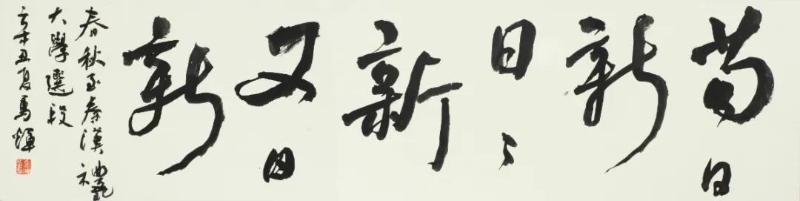 苟日
新
日々
新
又日
新
春秋至秦漢禮
大學選段
辛丑夏馬煇